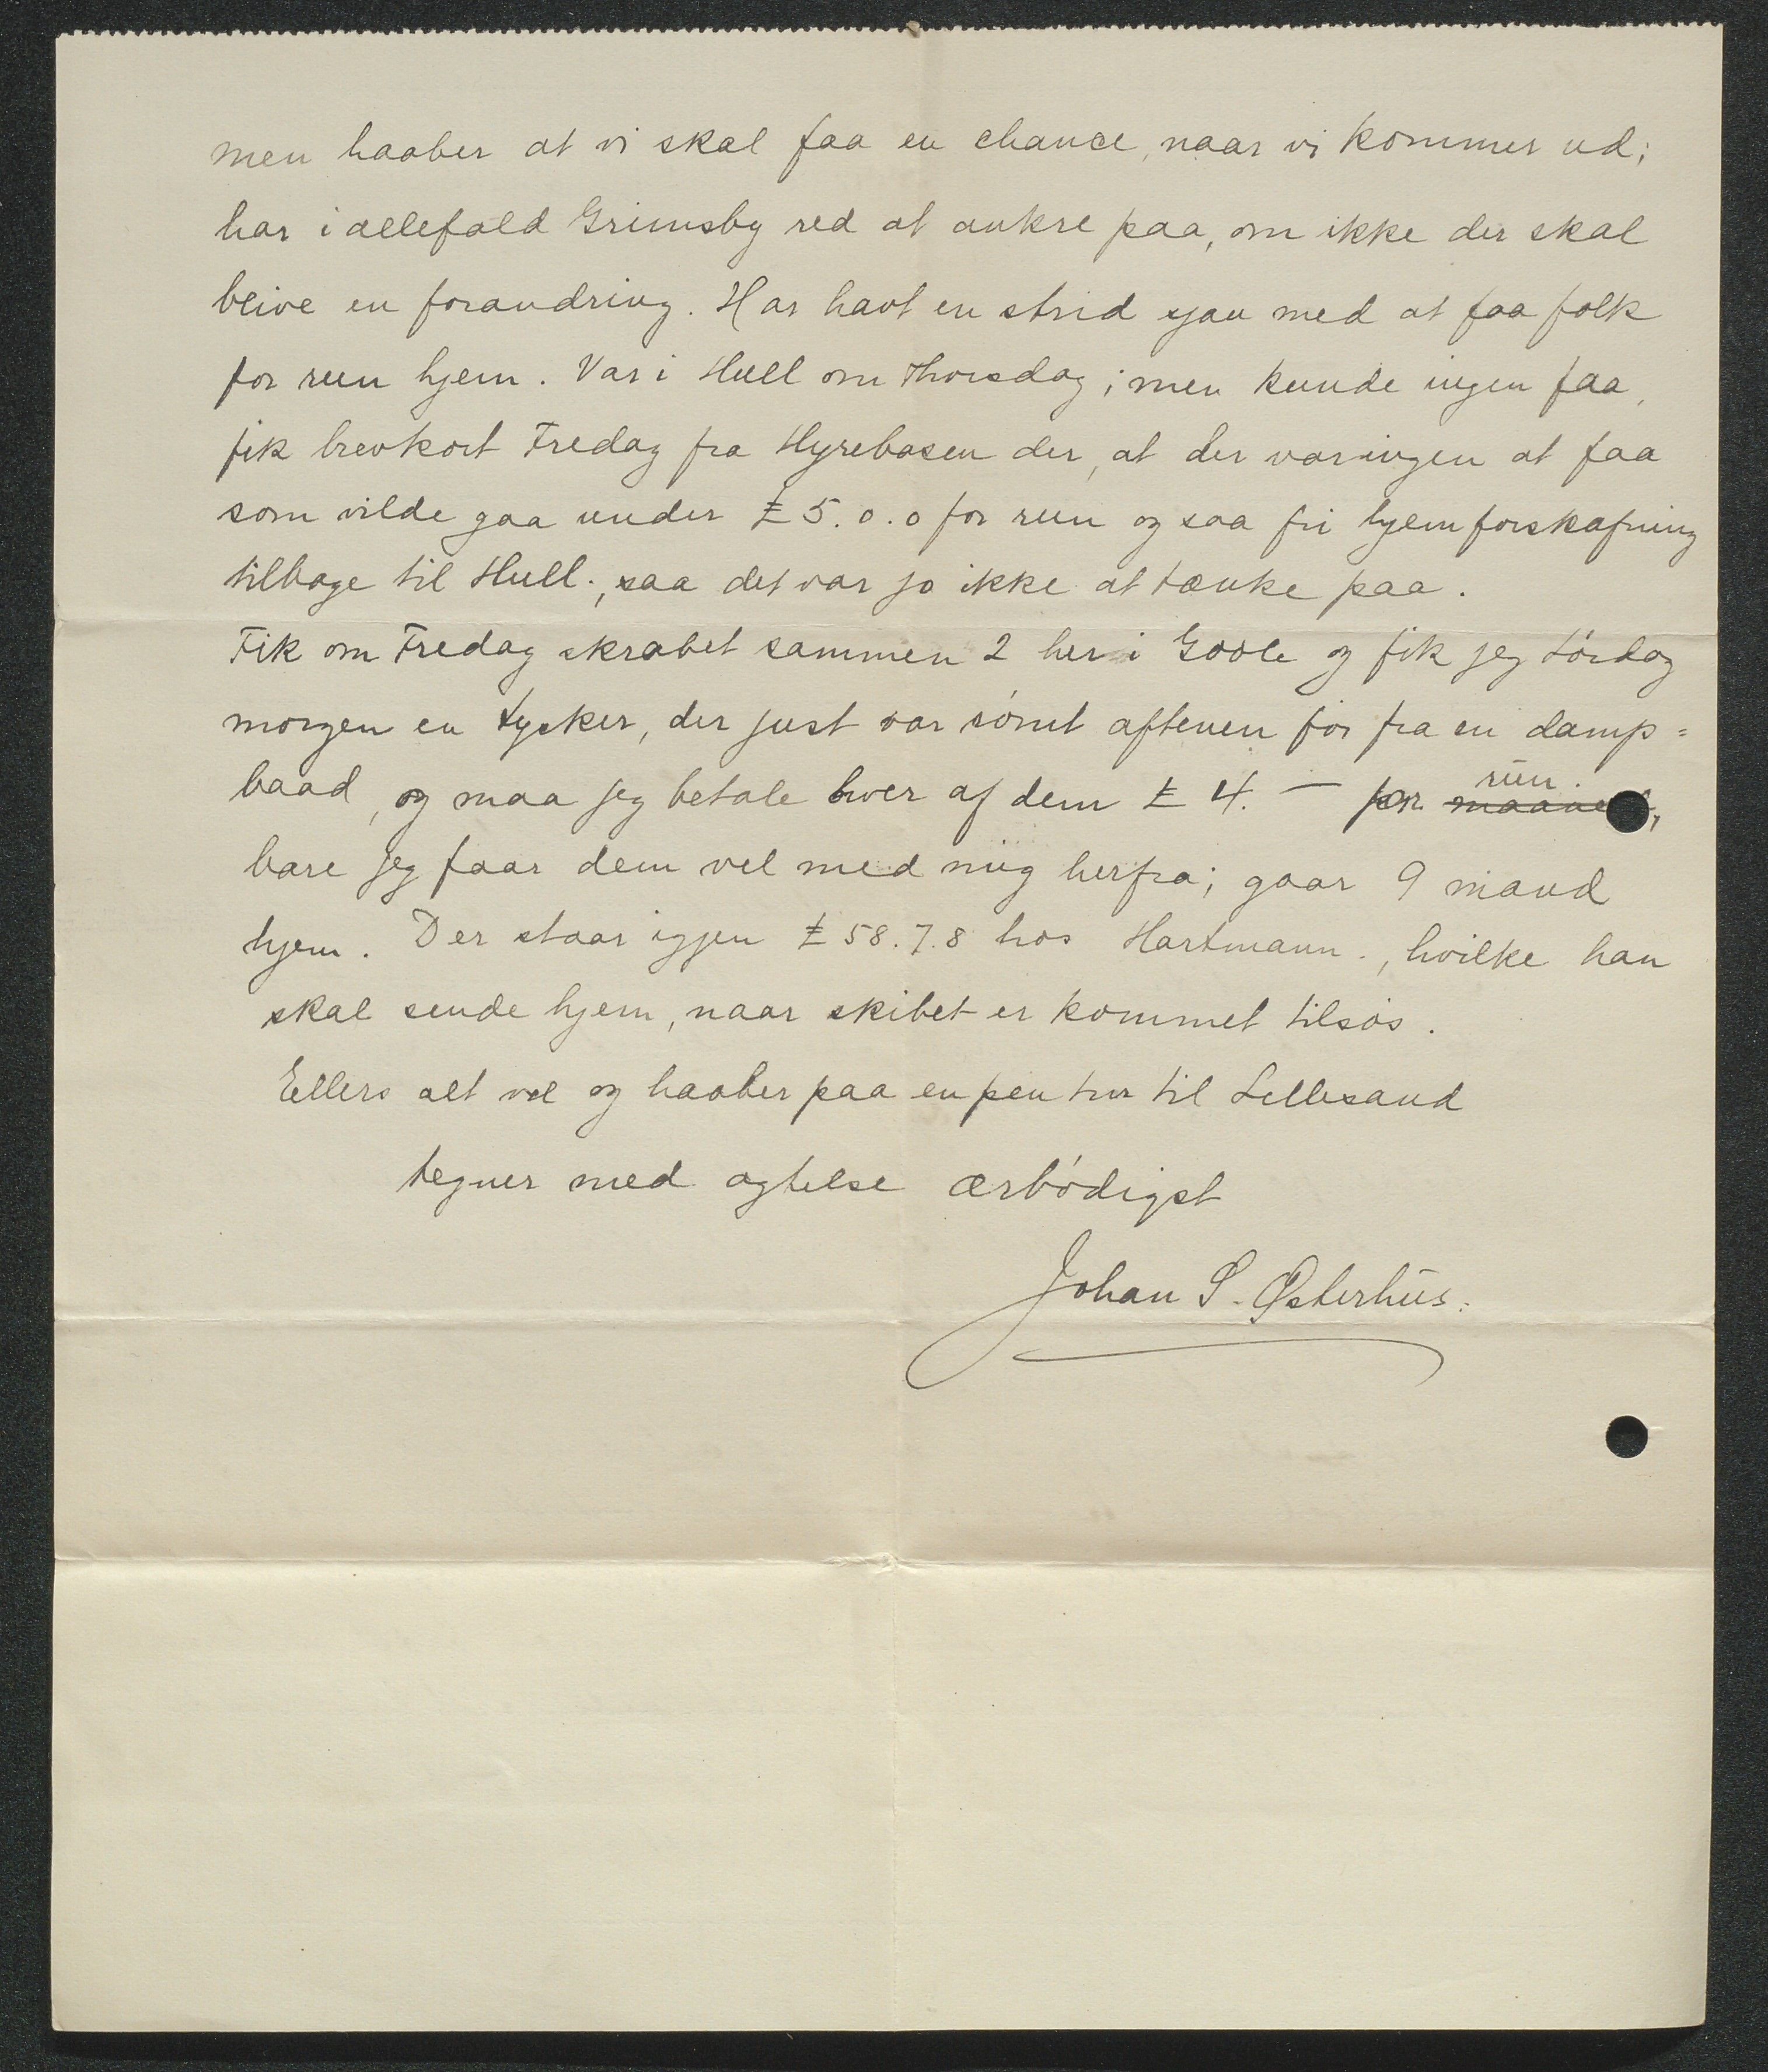 men haaber at vi skal faa en chance, naar vi kommer ud;
har i allefald Grimsby red at ankre paa, om ikke der skal
blive en forandring. Har havt en strid sjau med at faa folk
for run hjem. Var i Hull om Thorsdag; men kunde ingen faa,
fik brevkort Fredag fra Hyrebasen der, at der var ingen at faa
som vilde gaa under £ 5.0.0 for run og saa fri hjemforskafning
tilbage til Hull; saa det var jo ikke at tænke paa.
Fik om Fredag skrabet sammen 2 her i Goole og fik jeg Lördag
morgen en tysker, der just var römt aftenen för fra en damp=
baad, og maa jeg betale hver af dem £ 4. — for maaned, run.
bare jeg faar dem vel med mig herfra; gaar 9 mand
hjem. Der staar igjen £ 58.7.8 hos Hartmann., hvilke han
skal sende hjem, naar skibet er kommet tilsös.
Ellers alt vel og haaber paa en pen tur til Lillesand
tegner med agtelse ærbödigst
Johan S. Østerhus.